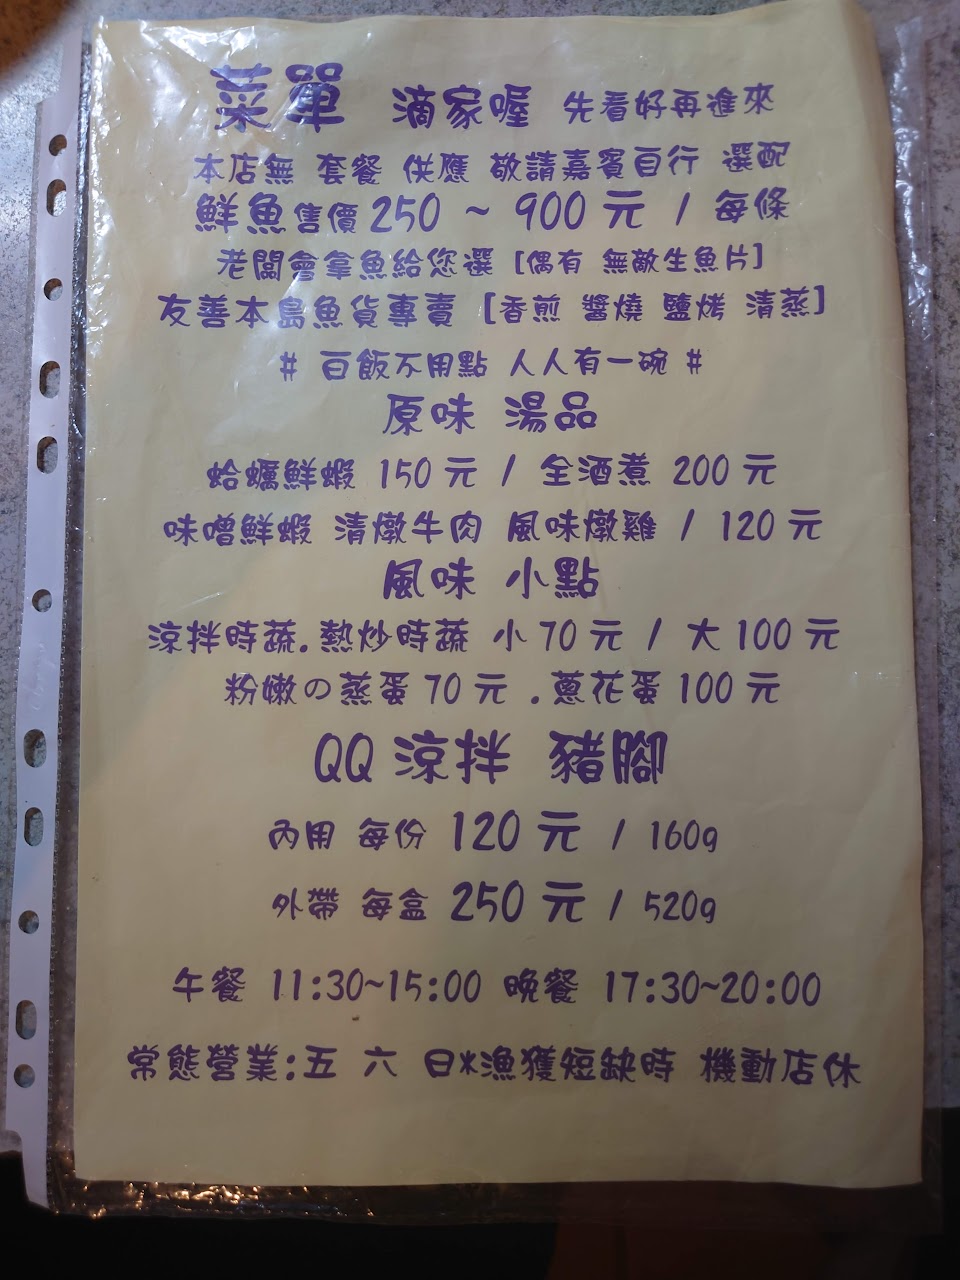 菜單 滴家喔 先看好再進來
本店無 套餐 供應 敬請嘉賓自行 選配
鮮魚售價250 ~ 900 元 / 每條
老闆會拿魚給您選 [偶有 無敵生魚片]
友善本島魚貨專賣 [香煎 醬燒 鹽烤 清蒸]
# 白飯不用點 人人有一碗 #
原味 湯品
蛤蠣鮮蝦 150 元 / 全酒煮 200 元
味噌鮮蝦 清燉牛肉 風味燉雞 / 120 元
風味 小點
涼拌時蔬.熱炒時蔬 小 70 元 / 大 100 元
粉嫩の蒸蛋 70 元 .蔥花蛋 100 元
QQ 涼拌 豬腳
內用 每份 120 元 / 160g
外帶 每盒 250 元 / 520g
午餐 11:30~15:00 晚餐 17:30~20:00
常態營業:五 六 日*漁獲短缺時 機動店休